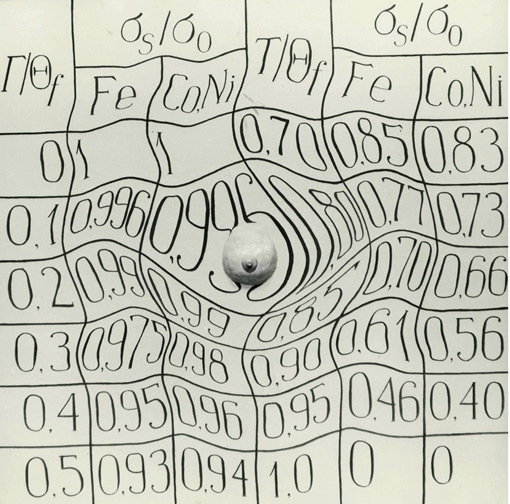 σs/σ0 σs/σ0
T/Θf Fe Co,Ni T/Θf Fe Co,Ni
0 1 1 0,70 0,85 0,83
0,1 0,996 0,80 0,77 0,73
0,2 0,99 0,99 0,85 0,70 0,66
0,3 0,975 0,98 0,90 0,61 0,56
0,4 0,95 0,96 0,95 0,46 0,40
0,5 0,93 0,94 1,0 0 0